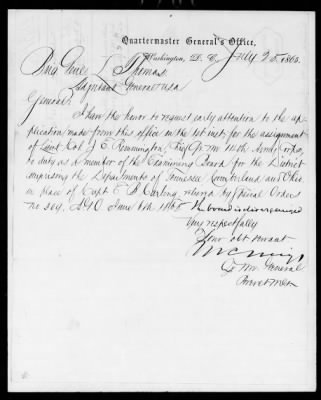 Quartermaster General's Office,
Washington, D. C., July 25, 1865.
Brig Genl L. Thomas
Adjutant General USA
General:
I have the honor to request early attention to the ap
plication made from this office on the inst for the assignment
of Lieut Col J. E. Remmington, Chf Qr. Mr. 14th Army Corps,
to duty as a member of the Examining Board for the District
comprising the Departments of Tennessee Cumberland and Ohio
in place of Capt E. B. Carling, relieved by Special Orders
No 309. A.G.O. June 1865. The board is disorganized
Very respectfully
Your obt servant
Qr Mr General
Brevet M Gen